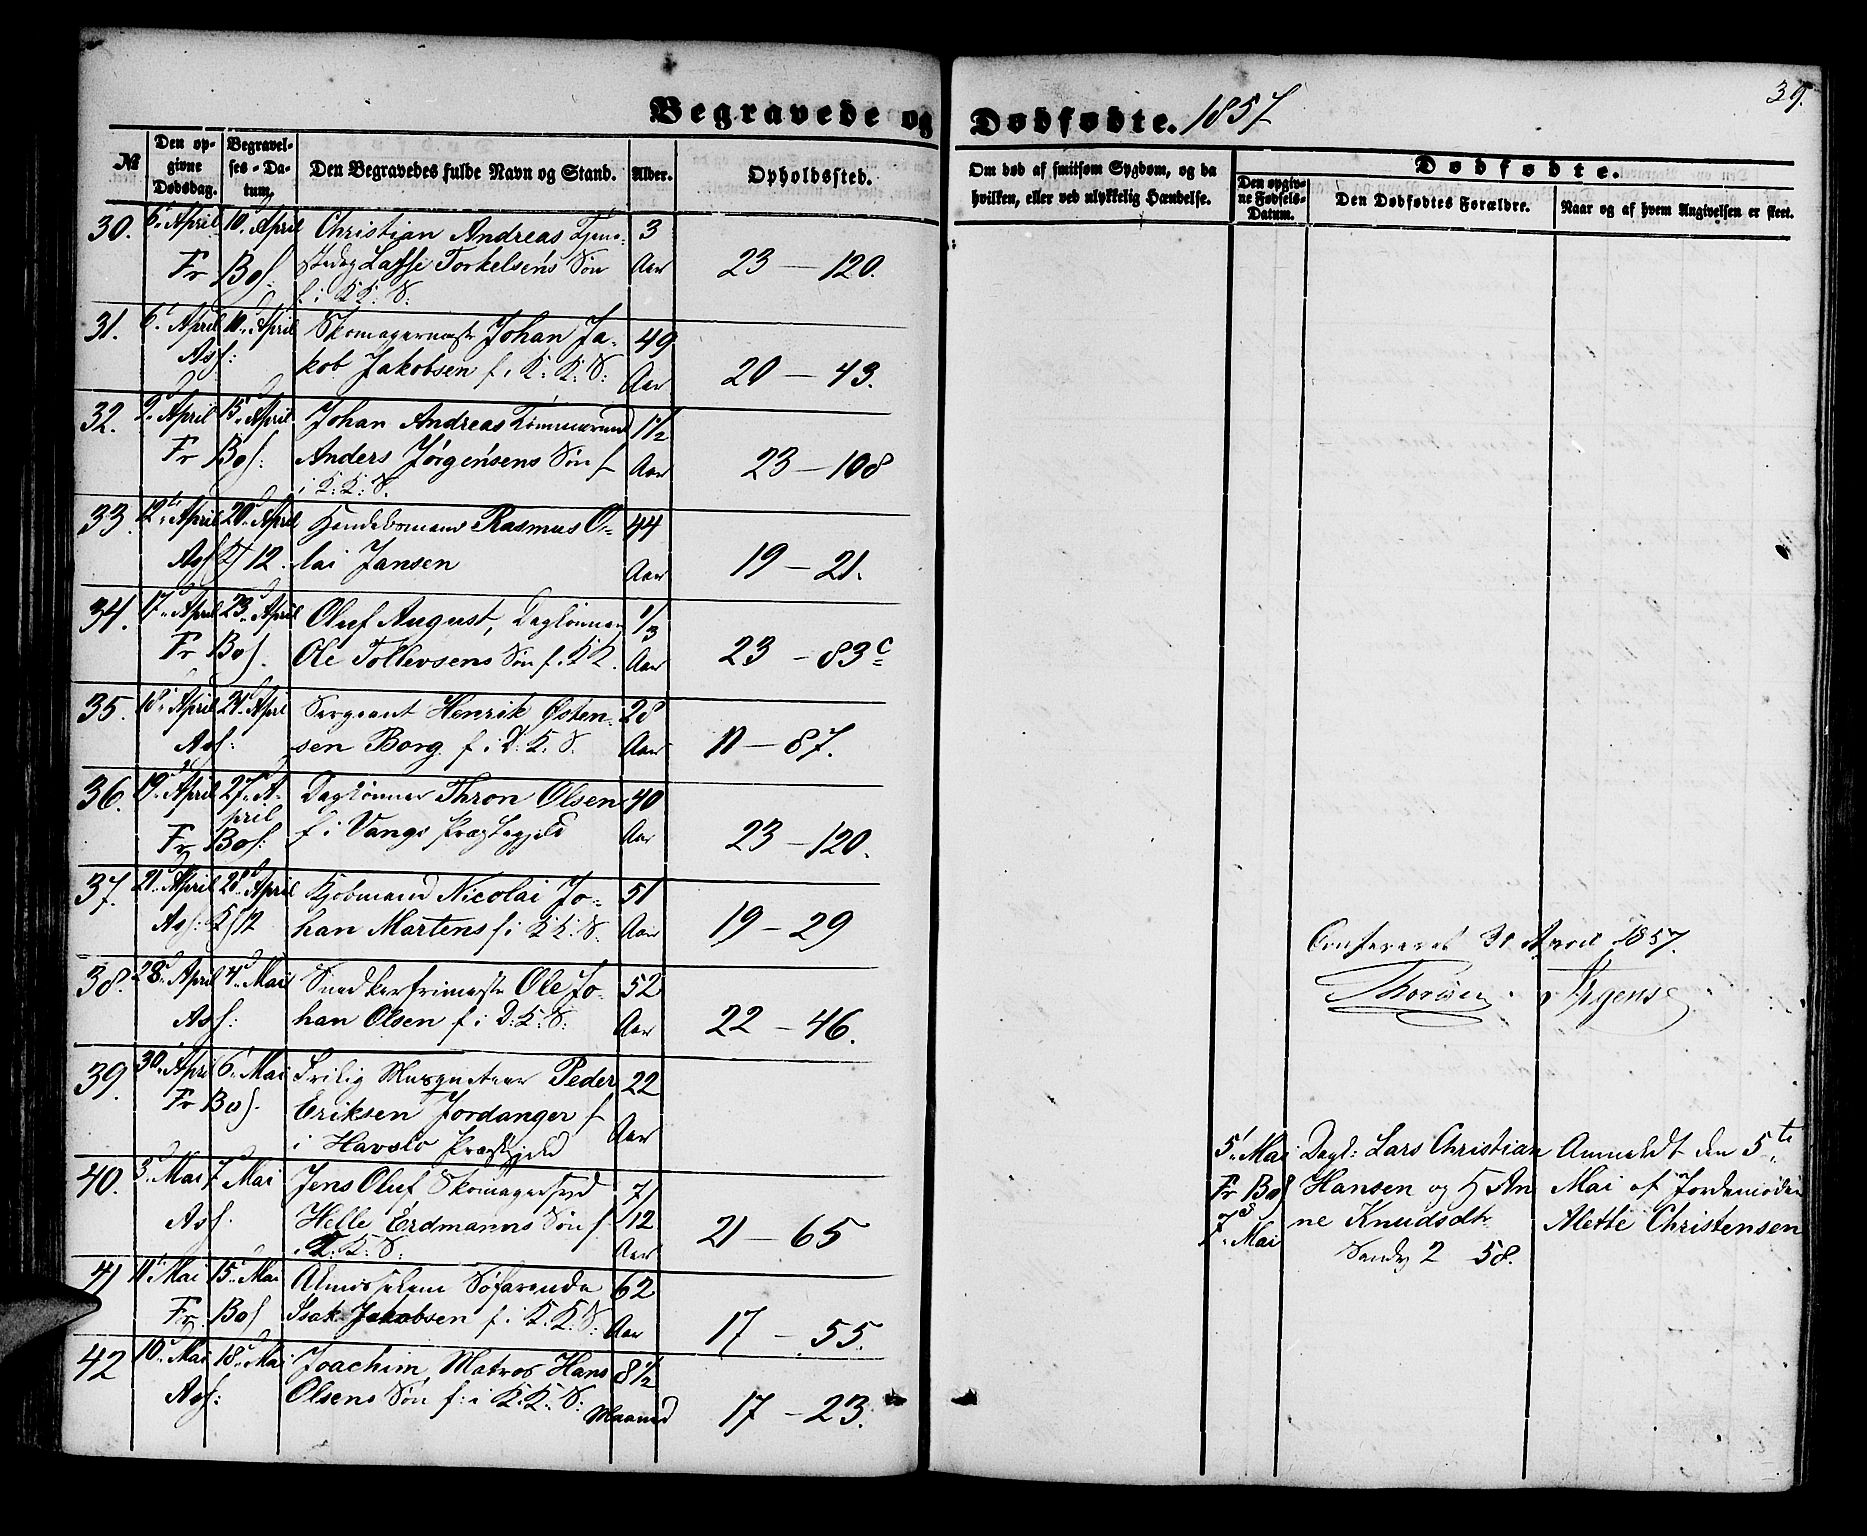 Begravede og Dødfødte. 1857
39.
№
Den op-
givne
Dødsdag.
Begravel-
ses-Da-
tum.
Den Begravedes fulde Navn og Stand.
Alder.
Opholdssted.
Om død af smitsom Sygdom, og da
hvilken, eller ved ulykkelig Hændelse.
Dødfødte.
Den opgiv-
ne Fødsels-
Datum.
Den Dødfødtes Forældre.
Naar og af hvem Angivelsen er skeet.
30. 6. April 10. April Christian Andreas 3
Lasse Torkelsens Søn Aar 23 – 120.
Fr Bos: f. i K.K. S.
31. 6. April 10. April Skomagermestr Johan Ja- 49
Ass: kob Jakobsen f. i K: K: S: Aar 20 – 43.
32. 9. April 15. April Johan Andreas Tømmermand 1½
Fr Bos: Anders Jørgensens Søn f. Aar 23 – 108
i K: K: S.
33. 12. April 20. April Rasmus O- 44
Ass Kj 12. lai Jansen Aar 19 – 21.
34. 17. April 23. April Oluf August, Daglønner 1/3
Fr Bos. Ole Tollevsens Søn f. i K K. Aar 23 – 83 c
35. 18. April 24. April Sergeant Henrik Østen- 28
Ass: sen Borg. f. i D: K: S. Aar 11 – 87.
36. 19. April 27. A- Daglønner Thron Olsen 40
pril
Fr Bos: f. i Vangs Præstegjeld Aar 23 – 120.
37. 21. April 28. April Kjøbmand Nicolai Jo- 51
Ass: Kj 12 han Martens f. i K K. S. Aar 19 – 29
38. 28. April 4. Mai Snedkerfrimestr Ole Jo- 52
Ass: han Olsen f. i D: K: S: Aar 22 – 46.
39. 30. April 6. Mai Musqueteer Peder 22
Fr Bos. Eriksen Jordanger f. Aar
i Havslo Præstegjeld
40. 3. Mai 7 Mai Jens Oluf Skomagersvend 7/12
Ass. Helle Erdmanns Søn f. Aar 21 – 65
i K. K. S:
41 11. Mai 15. Mai Almisselem Søfarende 62
Fr. Bos Isak Jakobsen f. i K. K. S: Aar 17 – 55.
42 10. Mai 18. Mai Joachim, Matros Hans 8½
Ass: Olsens Søn f: i K. K. S: Maaned 17 – 23.
Confereret 30 April 1857.
5. Mai Dagl: Lars Christian Anmeldt den 5te
Fr Bos Hansen og H An Mai af Jordemoder
7. Mai ne Knudsdtr Alette Christensen
Sandv 2 58.